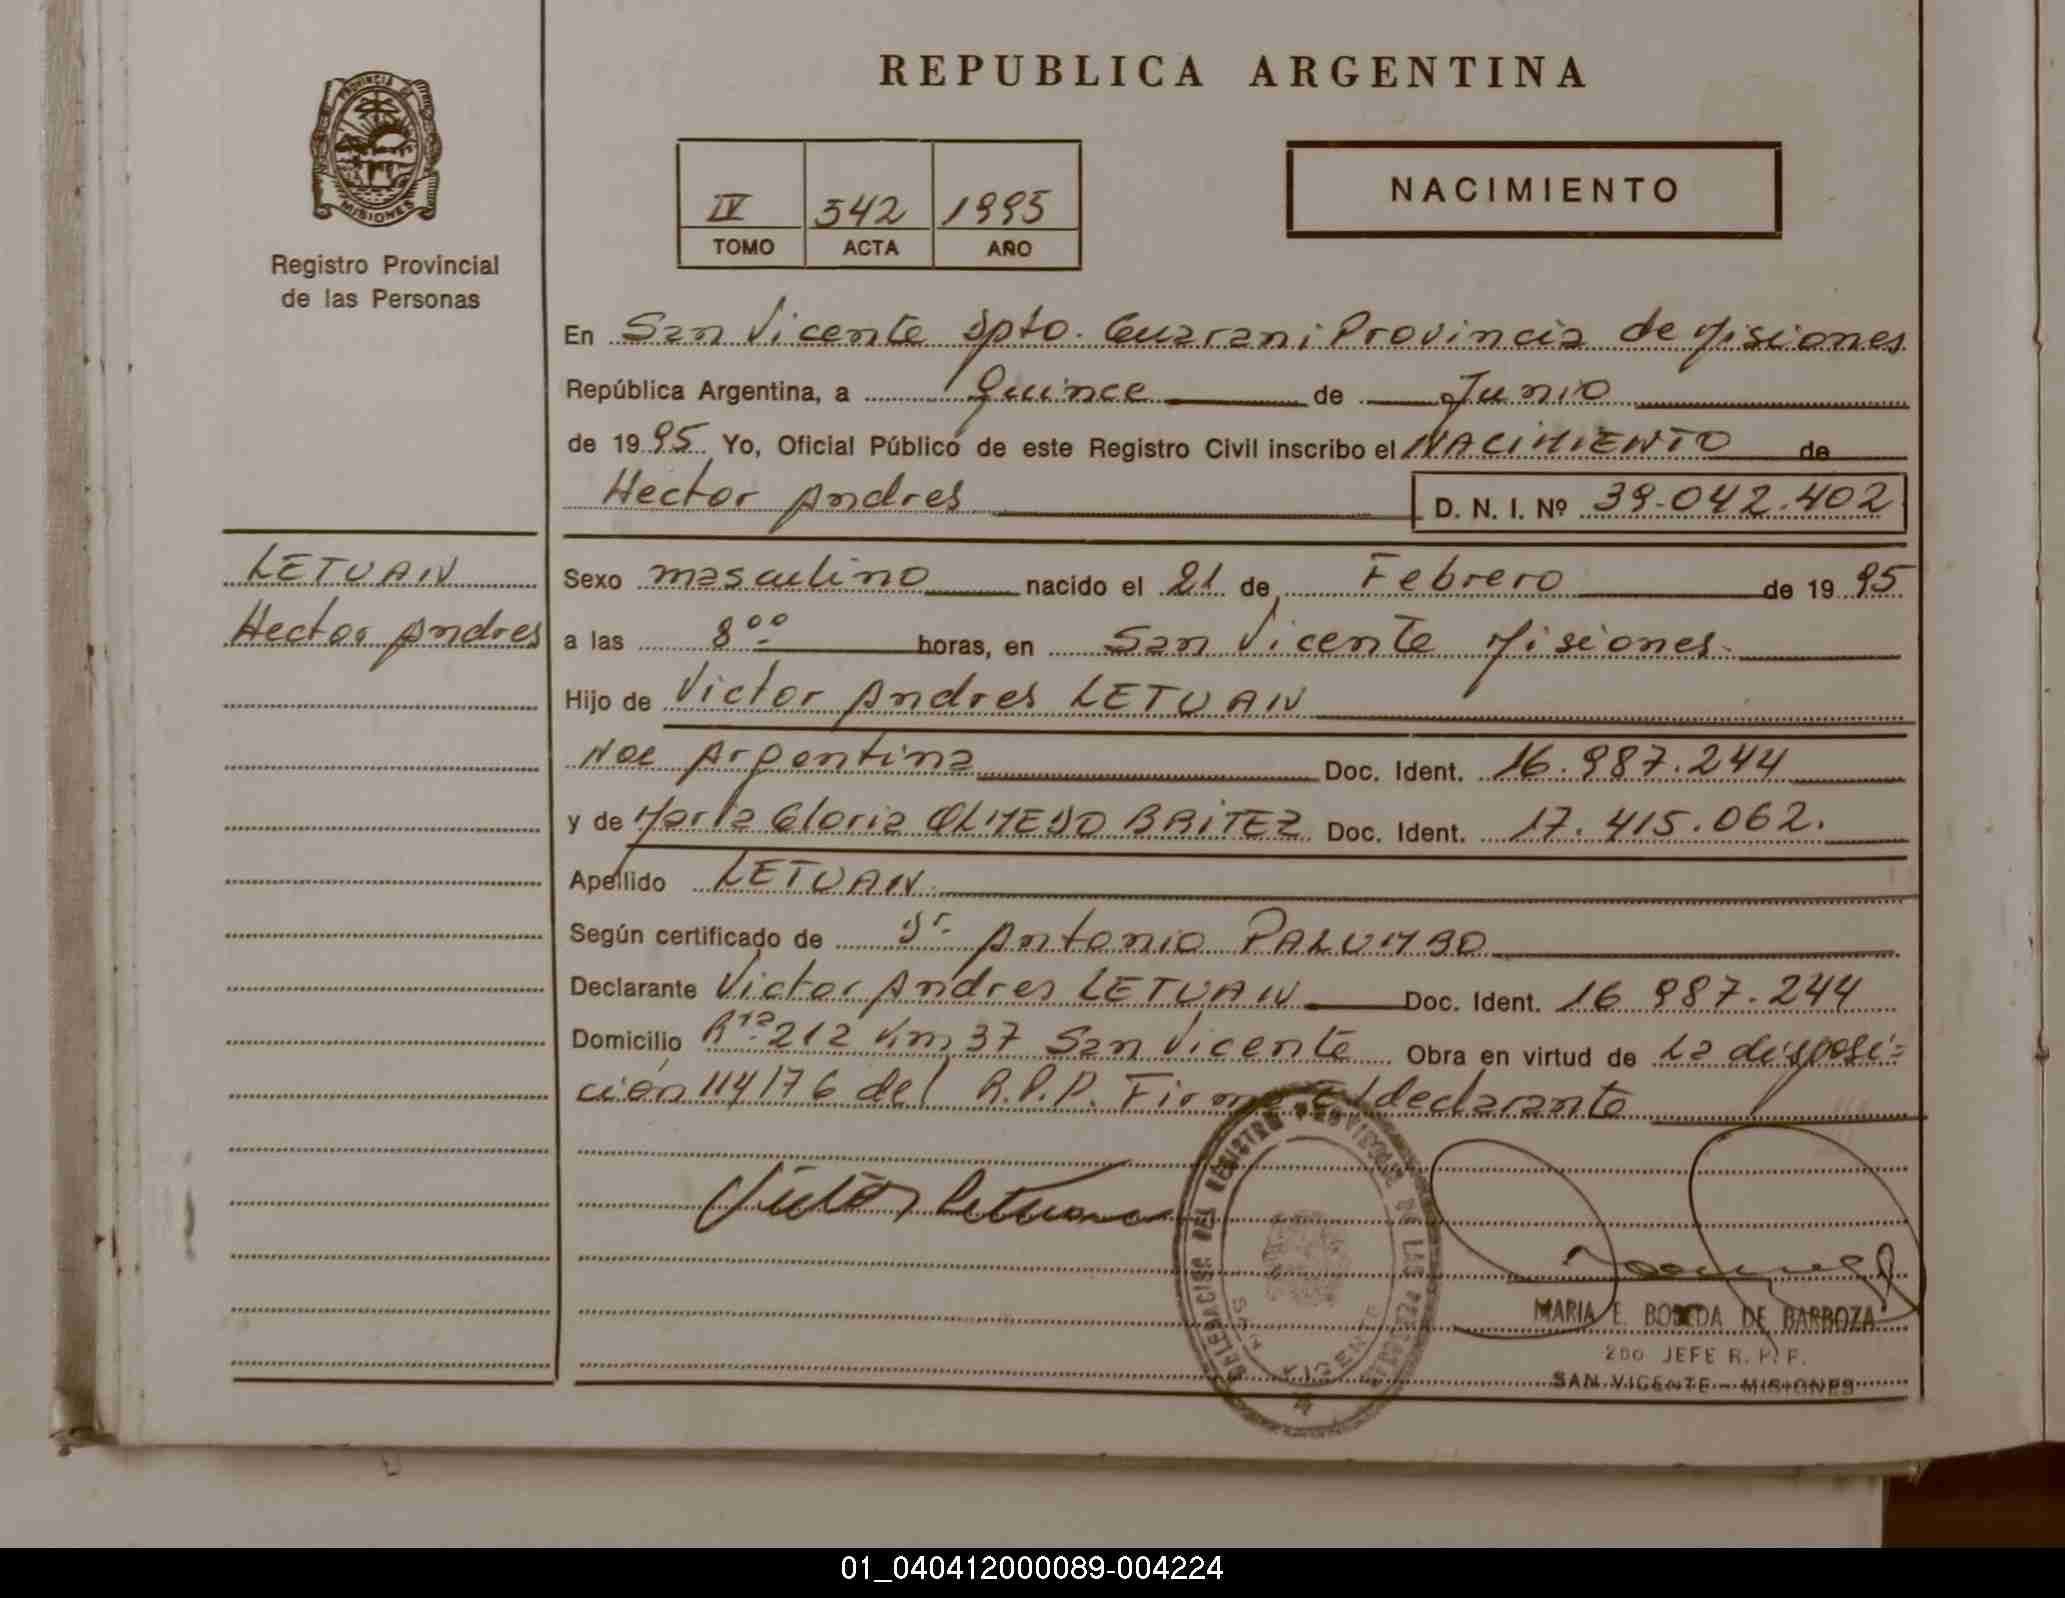 REPUBLICA ARGENTINA
PROVINCIA DE
MISIONES
Registro Provincial
de las Personas
IV 542 1995
TOMO ACTA AÑO
NACIMIENTO
En San Vicente Dpto. Guarani Provincia de Misiones
República Argentina, a Quince de Junio
de 1995 Yo, Oficial Público de este Registro Civil inscribo el NACIMIENTO de
Hector Andres D. N. I. Nº 39.042.402
LETUAN
Hector Andres
Sexo masculino nacido el 21 de Febrero de 1995
a las 8⁰⁰ horas, en San Vicente Misiones.
Hijo de Victor Andres LETUAN
Nac Argentina Doc. Ident. 16.987.244
y de Maria Gloria OLMEDO BRITEZ Doc. Ident. 17.415.062.
Apellido LETUAN
Según certificado de Dr. Antonio PALUMBO
Declarante Victor Andres LETUAN Doc. Ident. 16 987.244
Domicilio Rta. 212 Km 37 San Vicente Obra en virtud de la disposi-
ción 114/76 del R.P.P. Firma El declarante
Victor Letuan
DELEGACION DEL REGISTRO PROVINCIAL DE LAS PERSONAS
SAN VICENTE
MARIA E. BOVEDA DE BARBOZA
2DO JEFE R. P. P.
SAN VICENTE - MISIONES
01_040412000089-004224